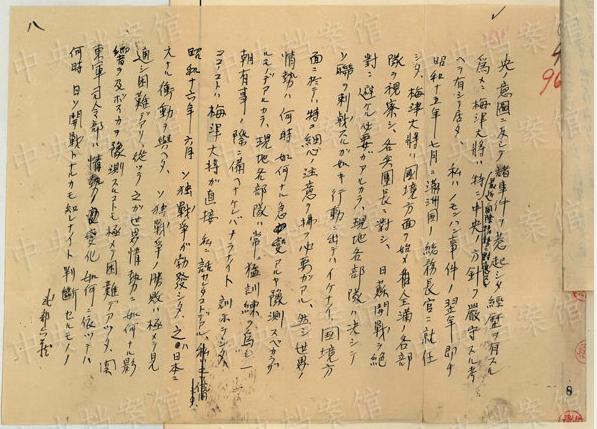 八
96
央ノ意図ニ反シテ諸事件ヲ惹起シタ経歴ヲ有スル
為メニ梅津大将ハ特ニ中央ノ方針ヲ厳守スル考
ヘヲ有シテ居タ、私ハノモンハン事件ノ翌年即チ
昭和十五年七月ニ満洲国ノ総務長官ニ就任
シタ、梅津大将ハ国境方面ヲ始メ全満ノ各部
隊ヲ視察シ、各兵団長ニ対シ、日蘇開戦ヲ絶
対ニ避ケル必要ガアルカラ、現地各部隊ハ決シテ
ソ聯ヲ刺戟スルガ如キ行動ニ出テハイケナイ、国境方
面ニ於テハ特ニ細心ノ注意ヲ払フ必要ガアル、然シ世界ノ
情勢ハ何時如何ナル急変アルヤ予測スベカラザ
ルモノデアルカラ、現地各部隊ハ常ニ猛訓練ヲ為シ一
朝有事ノ際ニ備ヘナケレバナラナイト訓示シタ、
コノコトハ梅津大将ガ直接私ニ話
昭和十六年六月ソ独戦争ガ勃発シタ、之ハ日本ニ
大ナル衝動ヲ与ヘタ、ソ独戦争ノ勝敗ハ極メテ見
通シ困難デアリ従ツテ之ガ世界情勢ニ如何ナル影
響ヲ及ボスカヲ予測スルコトモ極メテ困難デアツタ、関
東軍司令部ハ情勢ノ変化如何ニ依ツテハ
何時日ソ開戦トナルカモ知レナイト判断セルモノ
武部六蔵
8
中央档案馆